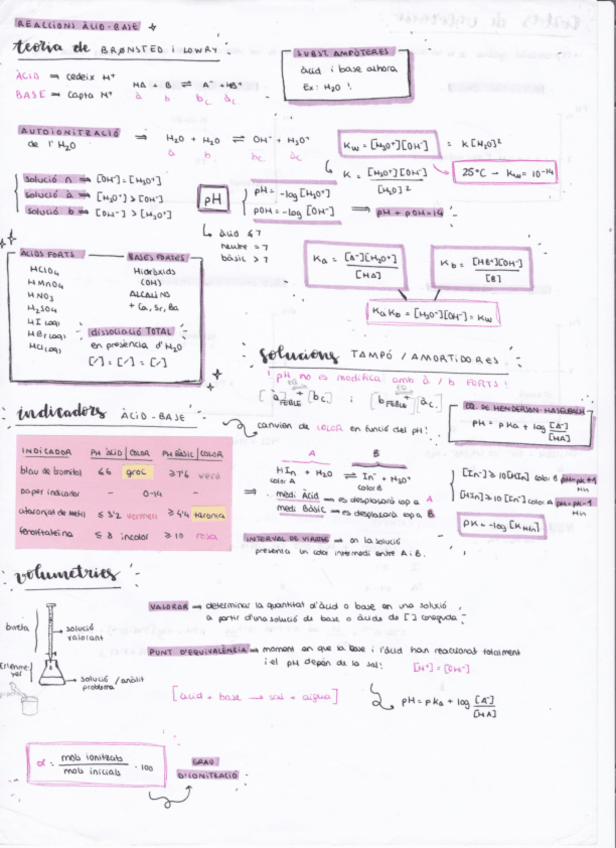 REACCIONS ÀCID-BASE
teoria de BRØNSTED I LOWRY
ÀCID ⇒ cedeix H⁺
BASE ⇒ capta H⁺
HA + B ⇌ A⁻ + HB⁺
à b bc àc
SUBST. AMPÒTERES
àcid i base alhora
Ex: H₂O !
AUTOIONITZACIÓ
de l'H₂O
⇒ H₂O + H₂O ⇌ OH⁻ + H₃O⁺
à b bc àc
Kw = [H₃O⁺][OH⁻] = K[H₂O]²
K = [H₃O⁺][OH⁻] / [H₂O]²
25°C → Kw = 10⁻¹⁴
solució n ⇒ [OH⁻] = [H₃O⁺]
solució à ⇒ [H₃O⁺] > [OH⁻]
solució b ⇒ [OH⁻] > [H₃O⁺]
pH
pH = -log[H₃O⁺]
pOH = -log[OH⁻]
⇒ pH + pOH = 14
àcid < 7
neutre = 7
bàsic > 7
ÀCIDS FORTS
HClO₄
HMnO₄
HNO₃
H₂SO₄
HI (aq)
HBr (aq)
HCl (aq)
BASES FORTES
Hidròxids
(OH)
ALCALINS
+ Ca, Sr, Ba
dissociació TOTAL
en presència d'H₂O
[✓] = [✓] = [✓]
Ka = [A⁻][H₃O⁺] / [HA]
Kb = [HB⁺][OH⁻] / [B]
Ka Kb = [H₃O⁺][OH⁻] = Kw
solucions TAMPÓ / AMORTIDORES
! pH no es modifica amb à / b FORTS !
[à FEBLE] + [bc] ; [b FEBLE] + [àc]
EQ. DE HENDERSON-HASSELBALCH
pH = pKa + log [A⁻] / [HA]
indicadors ÀCID-BASE
canvien de COLOR en funció del pH!
INDICADOR PH ÀCID | COLOR PH BÀSIC | COLOR
blau de bromotimol ≤ 6 groc ≥ 7'6
paper indicador - 0-14 -
≤ 3'2 vermell ≥ 4'4 taronja
fenolftaleïna ≤ 8 incolor ≥ 10 rosa
A B
HIn + H₂O ⇌ In⁻ + H₃O⁺
color A color B
⇒ medi Àcid → es desplaçarà cap a A
medi Bàsic → es desplaçarà cap a B
INTERVAL DE VIRATGE → on la solució
presenta un color intermedi entre A i B.
[In⁻] ≥ 10[HIn] color B pH = pK + 1
HIn
[HIn] ≥ 10[In⁻] color A pH = pK - 1
HIn
pK = -log[KHIn]
volumetries
bureta
solució valorant
Erlenmeyer
solució / anàlit problema
VALORAR → determinar la quantitat d'àcid o base en una solució
a partir d'una solució de base o àcids de [ ] coneguda.
PUNT D'EQUIVALÈNCIA → moment en que la base i l'àcid han reaccionat totalment
i el pH depèn de la sal: [H⁺] = [OH⁻]
[àcid + base → sal + aigua]
pH = pKa + log [A⁻] / [HA]
α = mols ionitzats / mols inicials · 100
GRAU
D'IONITZACIÓ